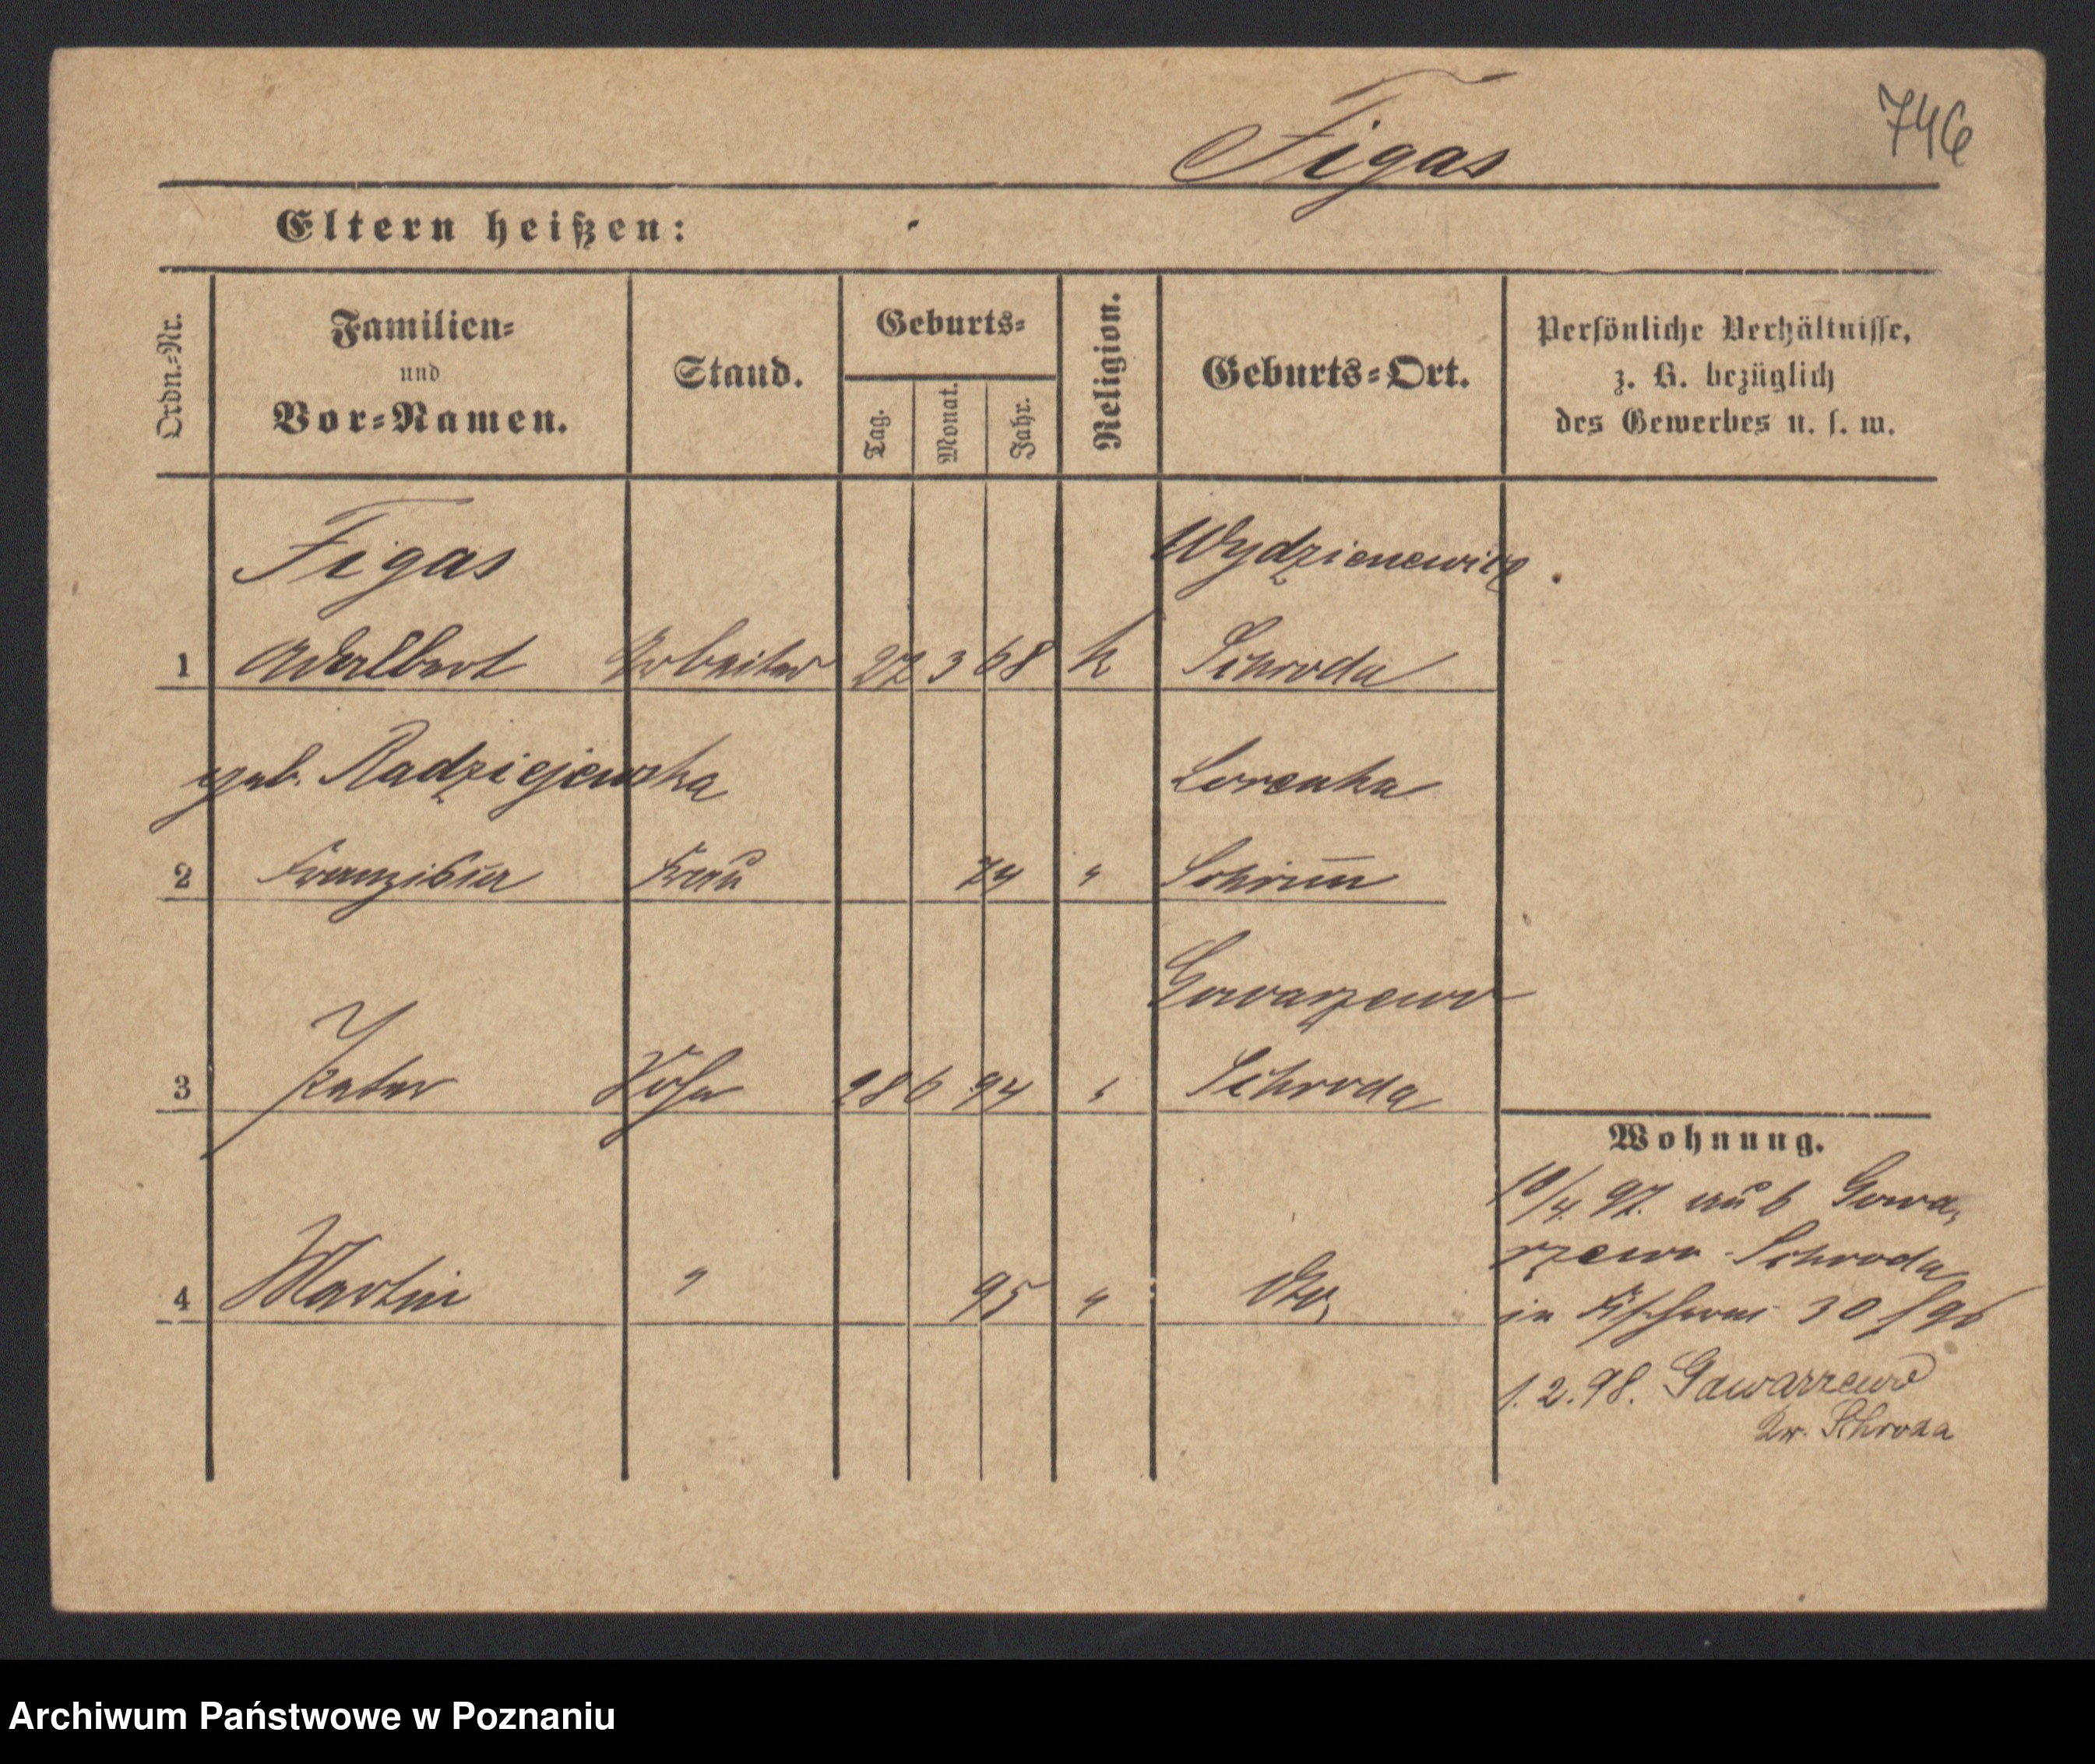 746
Figas
Eltern heißen:
Ordn.-Nr.
Familien-
und
Vor-Namen.
Stand.
Geburts-
Tag.
Monat.
Jahr.
Religion.
Geburts-Ort.
Persönliche Verhältnisse,
z. B. bezüglich
des Gewerbes u. s. w.
Figas
1 Adalbert Arbeiter 27 3 68 k Schroda
geb. Radziejewska
Lorenka
2 Franziska Frau 74 " Schrimm
Gowarzewo
3 Peter Sohn 28 6 94 " Schroda
4 Martin " 95 " Dto,
Wohnung.
10/4. 97. aus Gowa-
rzewo - Schroda
in 30 / 96
1.2.98. Gawarzewo
Kr. Schroda
Archiwum Państwowe w Poznaniu